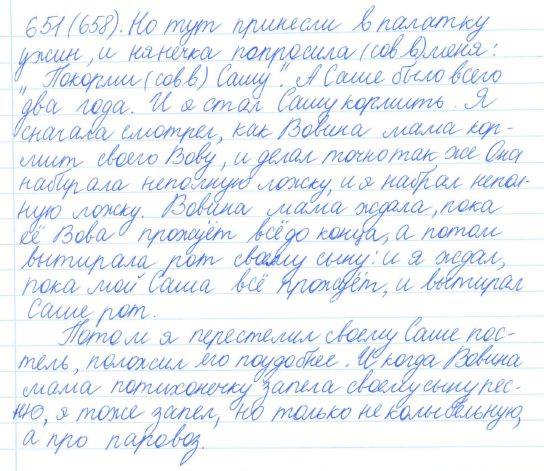 651 (658). Но тут принесли в палатку
ужин, и нянечка попросила (сов в) меня:
"Покорми (сов в) Сашу". А Саше было всего
два года. И я стал Сашу кормить. Я
сначала смотрел, как Вовина мама кор-
мит своего Вову, и делал точно так же Она
набирала неполную ложку, и я набрал непол-
ную ложку. Вовина мама ждала, пока
её Вова прожуёт всё до конца, а потом
вытирала рот своему сыну: и я ждал,
пока мой Саша всё прожуёт, и вытирал
Саше рот.
Потом я перестелил своему Саше пос-
тель, положил его поудобнее. И когда Вовина
мама потихонечку запела своему сыну пес-
ню, я тоже запел, но только не колыбельную,
а про паровоз.